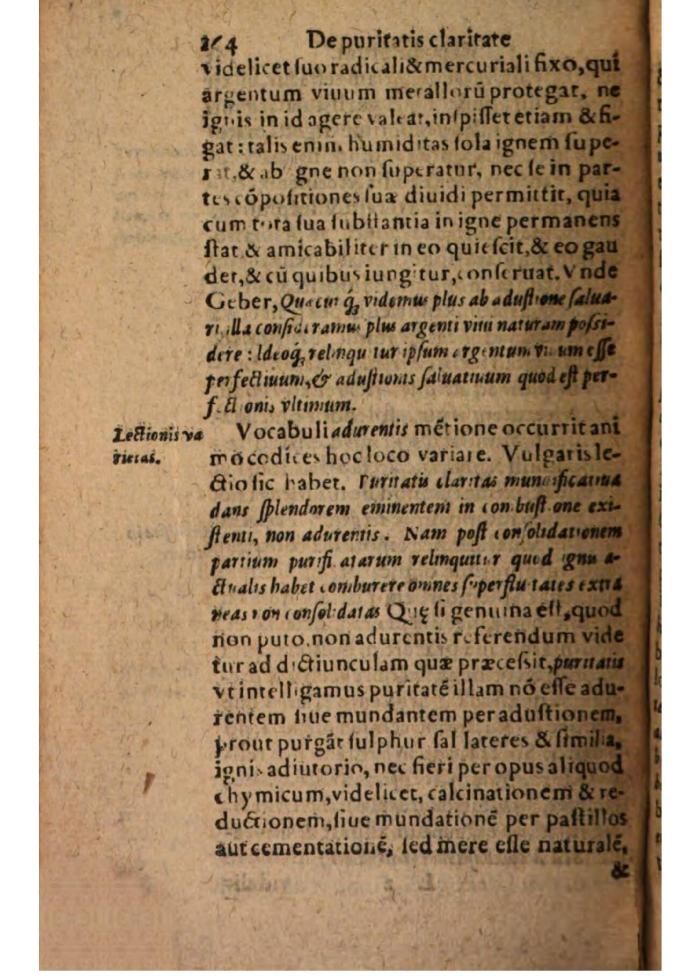 264 De puritatis claritate
videlicet suo radicali & mercuriali fixo, qui
argentum viuum metallorū protegat, ne
ignis in id agere valeat, inspisset etiam & fi-
gat : talis enim humiditas sola ignem supe-
rat, & ab igne non superatur, nec se in par-
tes cōpositiones suæ diuidi permittit, quia
cum tota sua substantia in igne permanens
stat & amicabiliter in eo quiescit, & eo gau
det, & cū quibus iungitur, conseruat. Vnde
Geber, Quæcunq; videmus plus ab adustione salua-
ri, illa consideramus plus argenti viui naturam possi-
dere : Ideoq; relinquitur ipsum argentum viuum esse
perfectiuum, & adustionis saluatiuum quod est per-
fectionis vltimum.
Lectionis va
rietas.
Vocabuli adurentis mētione occurrit ani
mō codices hoc loco variare. Vulgaris le-
ctio sic habet. Puritatis claritas mundificatiua
dans splendorem eminentem in combustione exi-
stenti, non adurentis. Nam post consolidationem
partium purificatarum relinquitur quod ignis a-
ctualis habet comburere omnes superfluitates extra
neas non consolidatas Quę si genuina est, quod
non puto, non adurentis referendum vide
tur ad dictiunculam quæ præcessit, puritatis
vt intelligamus puritatē illam nō esse adu-
rentem siue mundantem per adustionem,
prout purgāt sulphur sal lateres & similia,
ignis adiutorio, nec fieri per opus aliquod
chymicum, videlicet, calcinationem & re-
ductionem, siue mundationē per pastillos
aut cementationē, sed mere esse naturalē,
&